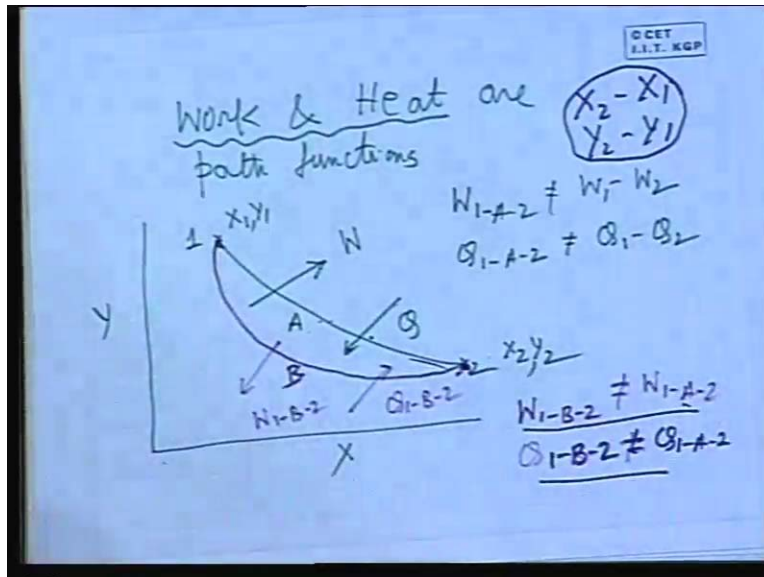 © CET
I.I.T. KGP
Work & Heat are
path functions
X2 - X1
Y2 - Y1
W1-A-2 ≠ W1 - W2
Q1-A-2 ≠ Q1 - Q2
1
X1, Y1
W
Y
A
Q
2
X2, Y2
B
W1-B-2
Q1-B-2
X
W1-B-2 ≠ W1-A-2
Q1-B-2 ≠ Q1-A-2